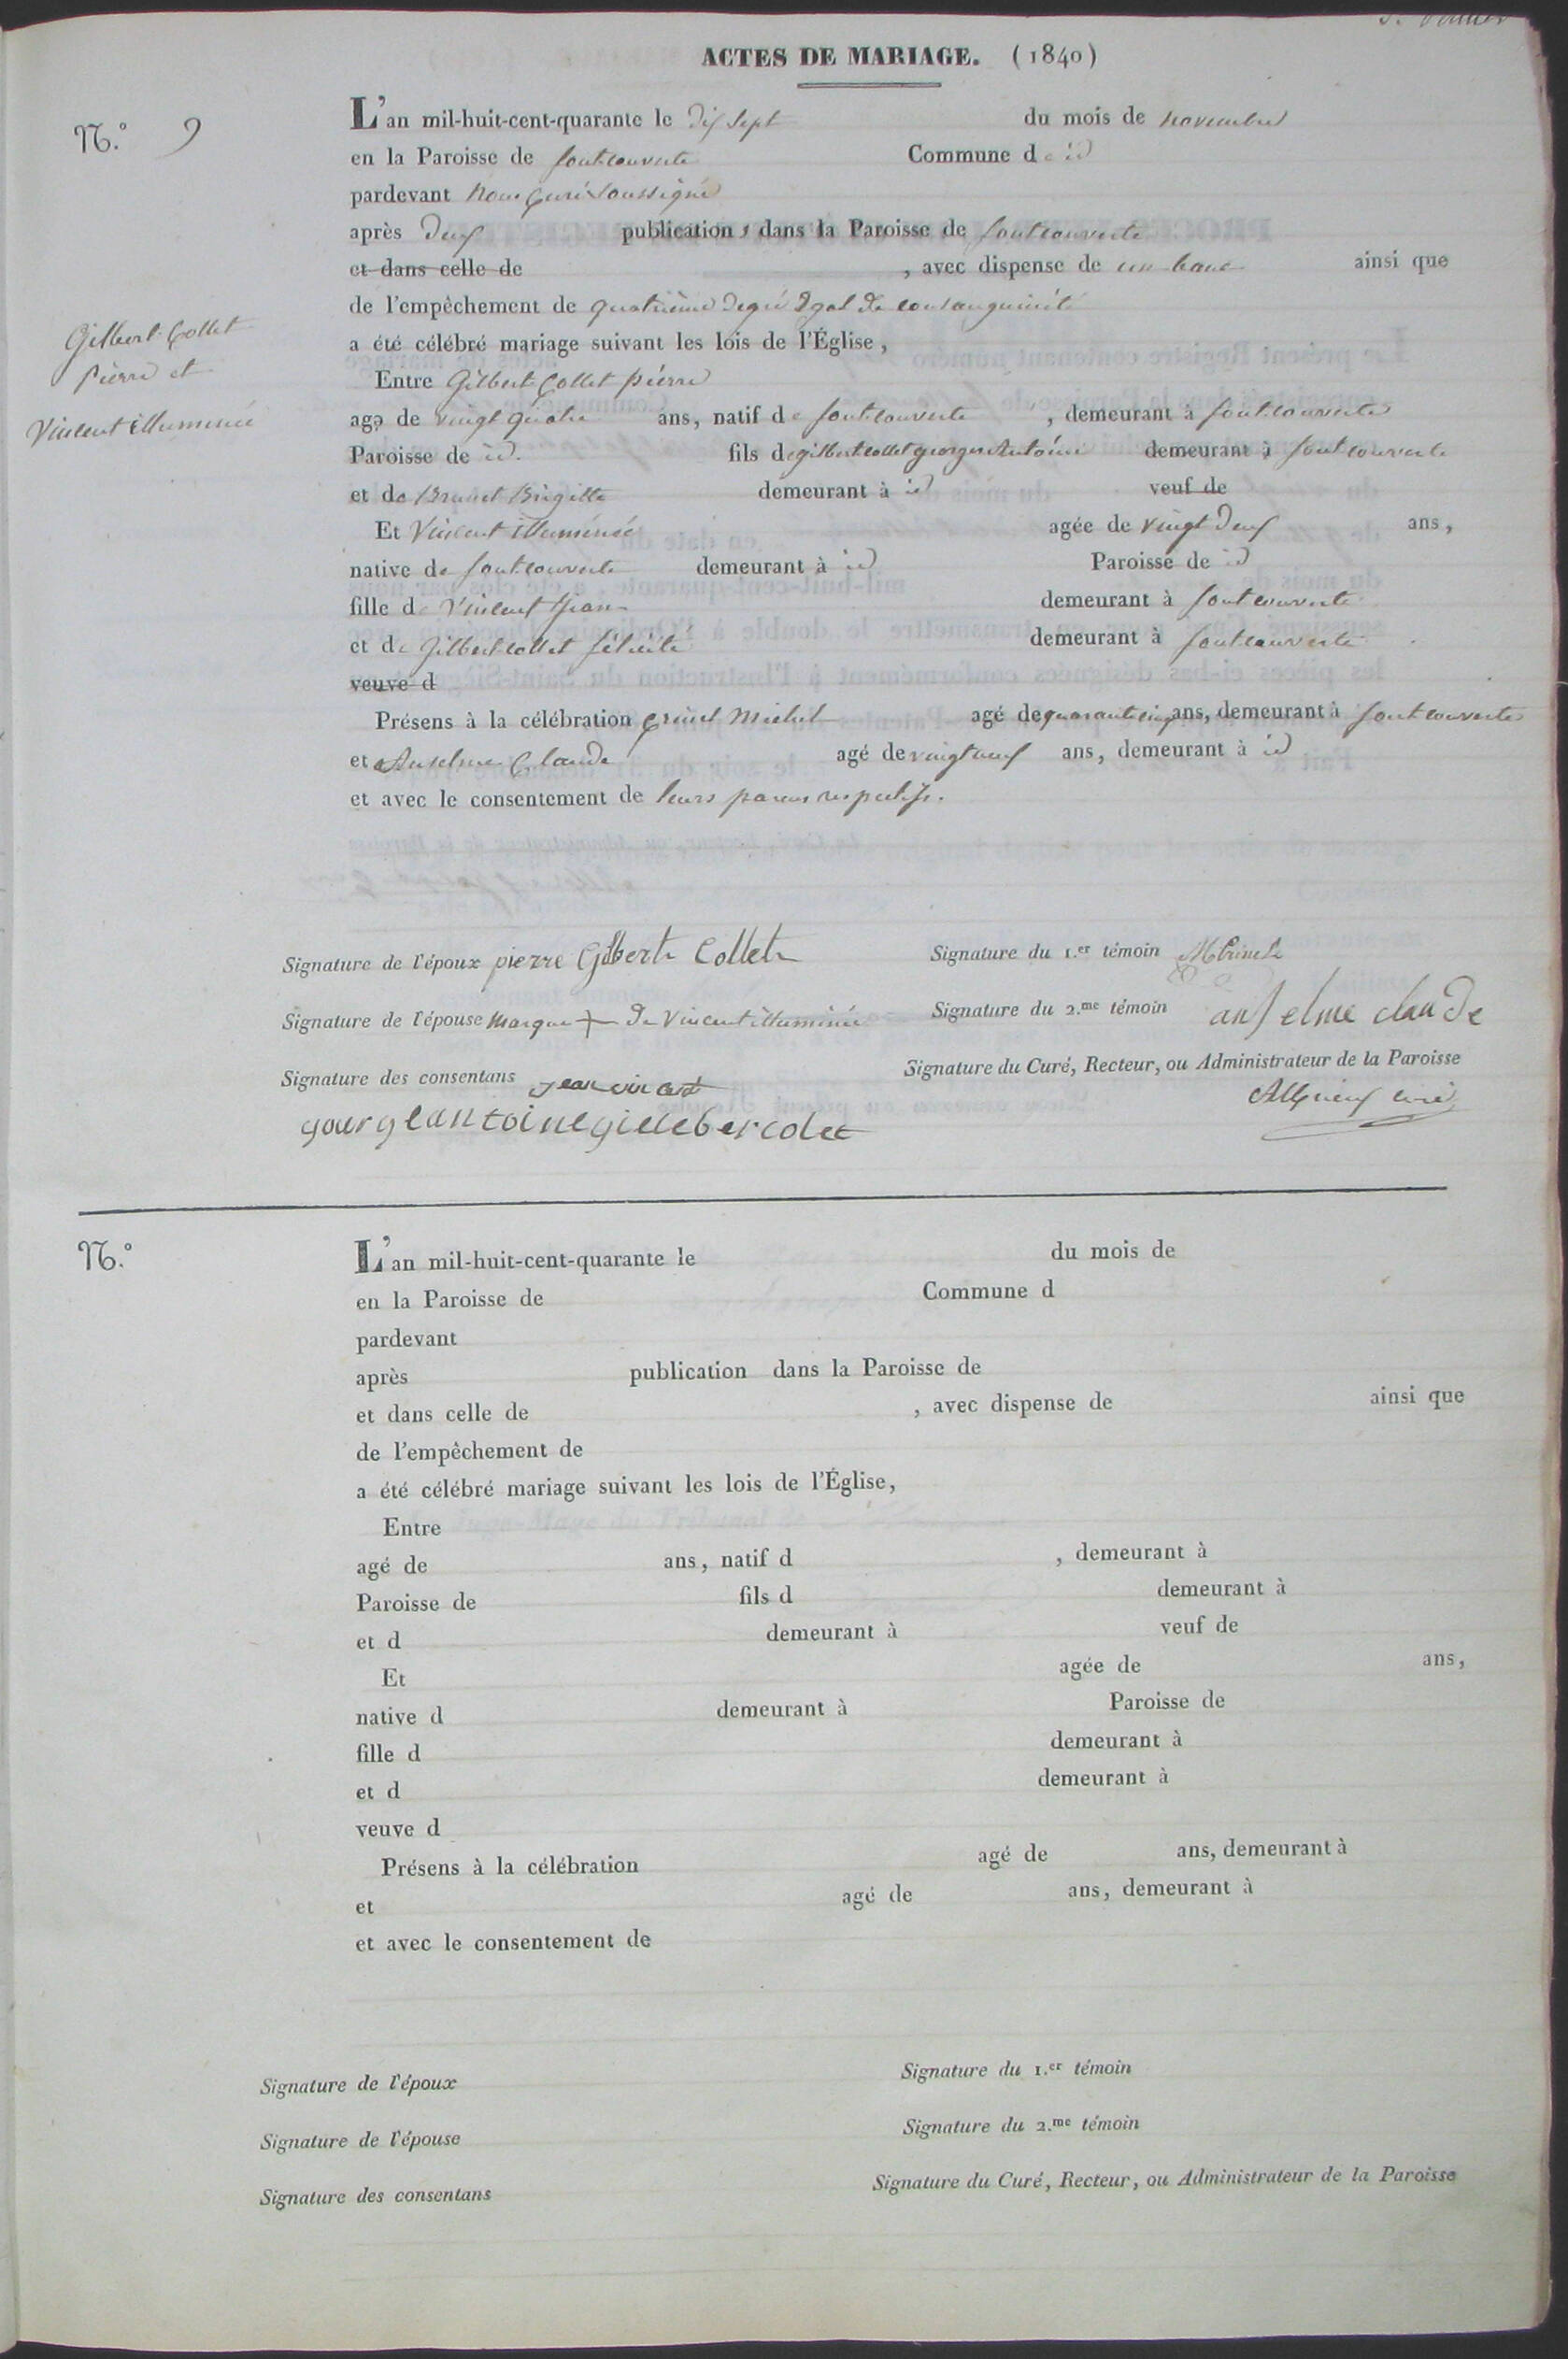 ACTES DE MARIAGE. (1840)
N.° 9
L'an mil-huit-cent-quarante le dix sept du mois de novembre
en la Paroisse de fontcouverte Commune de id
pardevant nous Curé soussigné
après deux publications dans la Paroisse de fontcouverte
et dans celle de , avec dispense de un banc ainsi que
de l'empêchement de quatrième degré égal de consanguinité
a été célébré mariage suivant les lois de l'Église,
Gilbert Collet
Pierre et
Vincent illuminée
Entre Gilbert Collet pierre
agé de vingt quatre ans, natif de fontcouverte , demeurant à fontcouverte
Paroisse de id. fils de gilbert collet georges Antoine demeurant à fontcouverte
et de Brunet Brigitte demeurant à id veuf de
Et Vincent illuminée agée de vingt deux ans,
native de fontcouverte demeurant à id Paroisse de id
fille de Vincent Jean demeurant à fontcouverte
et de gilbert collet félicité demeurant à fontcouverte
veuve d
Présens à la célébration michel agé de quarante cinq ans, demeurant à fontcouverte
et Anselme Claude agé de vingt neuf ans, demeurant à id
et avec le consentement de leurs parens respectifs.
Signature de l'époux pierre Gilbert Collet
Signature du 1.er témoin
Signature de l'épouse marque + de Vincent illuminée
Signature du 2.me témoin anselme claude
Signature des consentans jean vincent
Signature du Curé, Recteur, ou Administrateur de la Paroisse
gourgeantoinegillebercolet
curé
N.°
L'an mil-huit-cent-quarante le du mois de
en la Paroisse de Commune d
pardevant
après publication dans la Paroisse de
et dans celle de , avec dispense de ainsi que
de l'empêchement de
a été célébré mariage suivant les lois de l'Église,
Entre
agé de ans, natif d , demeurant à
Paroisse de fils d demeurant à
et d demeurant à veuf de
Et agée de ans,
native d demeurant à Paroisse de
fille d demeurant à
et d demeurant à
veuve d
Présens à la célébration agé de ans, demeurant à
et agé de ans, demeurant à
et avec le consentement de
Signature de l'époux Signature du 1.er témoin
Signature de l'épouse Signature du 2.me témoin
Signature des consentans Signature du Curé, Recteur, ou Administrateur de la Paroisse